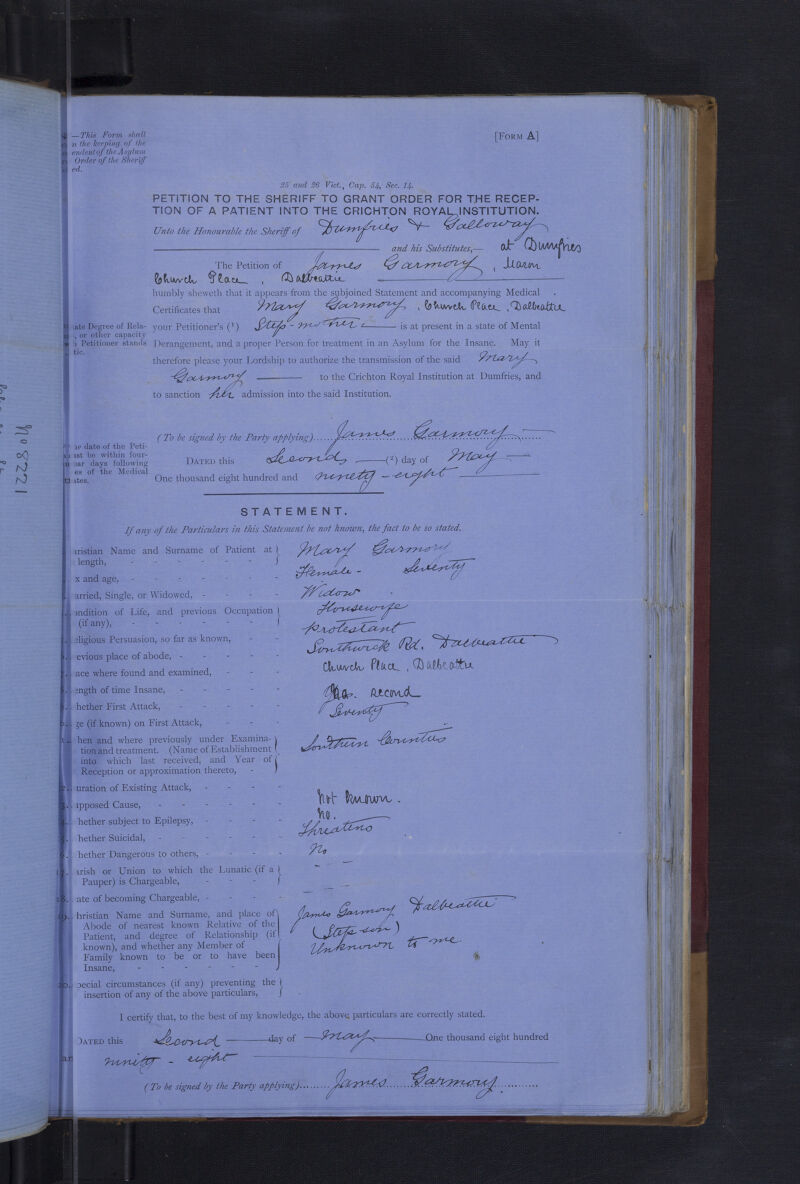 —This Form shall
the keeping of the
endent of the Asylum
Order of the Sheriff
ed.
[FORM A]
25 and 26 Vict., Cap. 54, Sec. 14.
PETITION TO THE SHERIFF TO GRANT ORDER FOR THE RECEP-
TION OF A PATIENT INTO THE CRICHTON ROYAL INSTITUTION.
Unto the Honourable the Sheriff of Dumfries & Galloway
and his Substitutes,— at Dumfries
The Petition of James Garmory, Mason
Church Place, Dalbeattie
humbly sheweth that it appears from the subjoined Statement and accompanying Medical
Certificates that Mary Garmory, Church Place, Dalbeattie
ate Degree of Rela-
, or other capacity
Petitioner stands
tic.
your Petitioner's (¹) Step-mother is at present in a state of Mental
Derangement, and a proper Person for treatment in an Asylum for the Insane. May it
therefore please your Lordship to authorize the transmission of the said Mary
Garmory to the Crichton Royal Institution at Dumfries, and
to sanction her admission into the said Institution.
date of the Peti-
st be within four-
ar days following
es of the Medical
ates.
(To be signed by the Party applying)......James Garmory
DATED this Second (²) day of May
One thousand eight hundred and ninety-eight
No 8221
STATEMENT.
If any of the Particulars in this Statement be not known, the fact to be so stated.
ristian Name and Surname of Patient at length, Mary Garmory
x and age, Female - Seventy
arried, Single, or Widowed, Widow
ondition of Life, and previous Occupation (if any), Housewife
eligious Persuasion, so far as known, Protestant
evious place of abode, Southwick Rd. Dalbeattie
ace where found and examined, Church Place, Dalbeattie
ength of time Insane,
hether First Attack, second
ge (if known) on First Attack, Seventy
hen and where previously under Examina-
tion and treatment. (Name of Establishment
into which last received, and Year of
Reception or approximation thereto, Southern Counties
uration of Existing Attack,
upposed Cause, Not known.
hether subject to Epilepsy, No.
hether Suicidal, Threatens
hether Dangerous to others, No
arish or Union to which the Lunatic (if a
Pauper) is Chargeable,
ate of becoming Chargeable,
hristian Name and Surname, and place of
Abode of nearest known Relative of the
Patient, and degree of Relationship (if
known), and whether any Member of
Family known to be or to have been
Insane,
James Garmory Dalbeattie
(Step-son)
Unknown to me
pecial circumstances (if any) preventing the
insertion of any of the above particulars,
I certify that, to the best of my knowledge, the above particulars are correctly stated.
DATED this Second day of May One thousand eight hundred
ninety-eight
(To be signed by the Party applying)......James Garmory